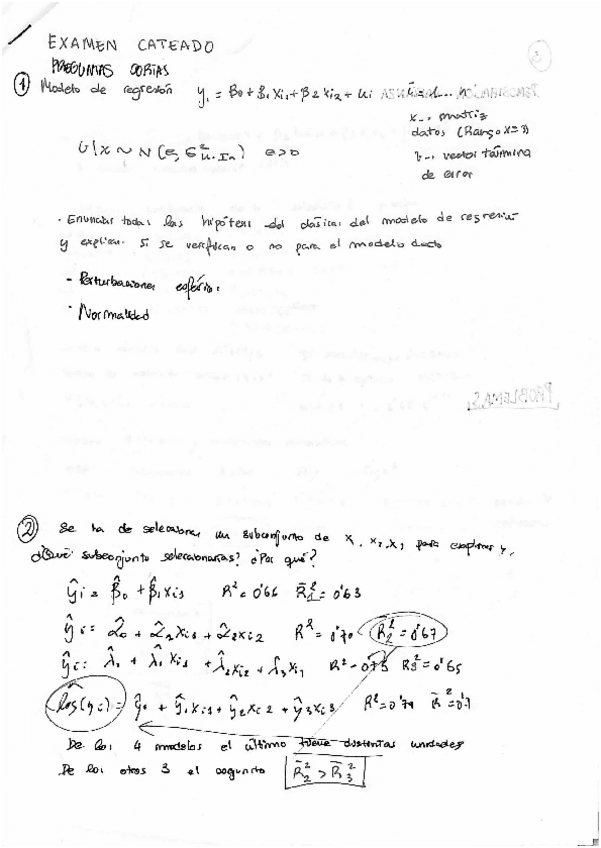 EXAMEN CATEADO
PREGUNTAS CORTAS
① Modelo de regresión yᵢ = β₀ + β₁ xᵢ₁ + β₂ xᵢ₂ + uᵢ
x → matriz
datos (Rango x = 3)
→ vector término
de error
U|x ~ N(
· Enunciar todas las hipótesis del clásicas del modelo de regresión
y explicar si se verifican o no para el modelo dado
- Perturbaciones esféricas
· Normalidad
PROBLEMAS
② Se ha de seleccionar un subconjunto de x₁, x₂, x₃ para explicar y,
¿Qué subconjunto seleccionarías? ¿Por qué?
ŷᵢ = β̂₀ + β̂₁xᵢ₁ R² = 0'66 R̄₁² = 0'63
ŷᵢ = α̂₀ + α̂₁xᵢ₁ + α̂₂xᵢ₂ R² = 0'70 R̄₂² = 0'67
ŷᵢ = λ̂₀ + λ̂₁xᵢ₁ + λ̂₂xᵢ₂ + λ̂₃xᵢ₃ R² = 0'73 R̄₃² = 0'65
log(yᵢ) = γ̂₀ + γ̂₁xᵢ₁ + γ̂₂xᵢ₂ + γ̂₃xᵢ₃ R² = 0'79 R̄²
De los 4 modelos el último tiene distintas unidades
De los otros 3 el segundo R̄₂² > R̄₃²